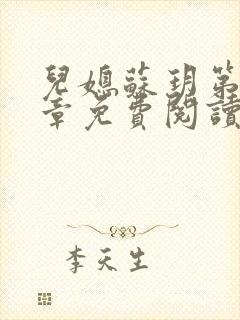 兒媳蘇玥第
章免費閱讀
李天生